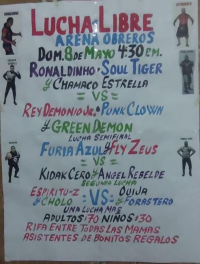 LUCHA LIBRE
ARENA OBREROS
DOM. 8 de MAYO 4:30 P.M.
RONALDINHO · SOUL TIGER
y CHAMACO ESTRELLA
= VS =
REY DEMONIO Jr. · PUNK CLOWN
y GREEN DEMON
LUCHA SEMIFINAL
FURIA AZUL y FLY ZEUS
= VS =
KIDAK CERO y ANGEL REBELDE
SEGUNDA LUCHA
ESPIRITU-Z = VS = OUIJA
y CHOLO y FORASTERO
UNA LUCHA MAS
ADULTOS $70 NIÑOS $30
RIFA ENTRE TODAS LAS MAMAS
ASISTENTES DE BONITOS REGALOS